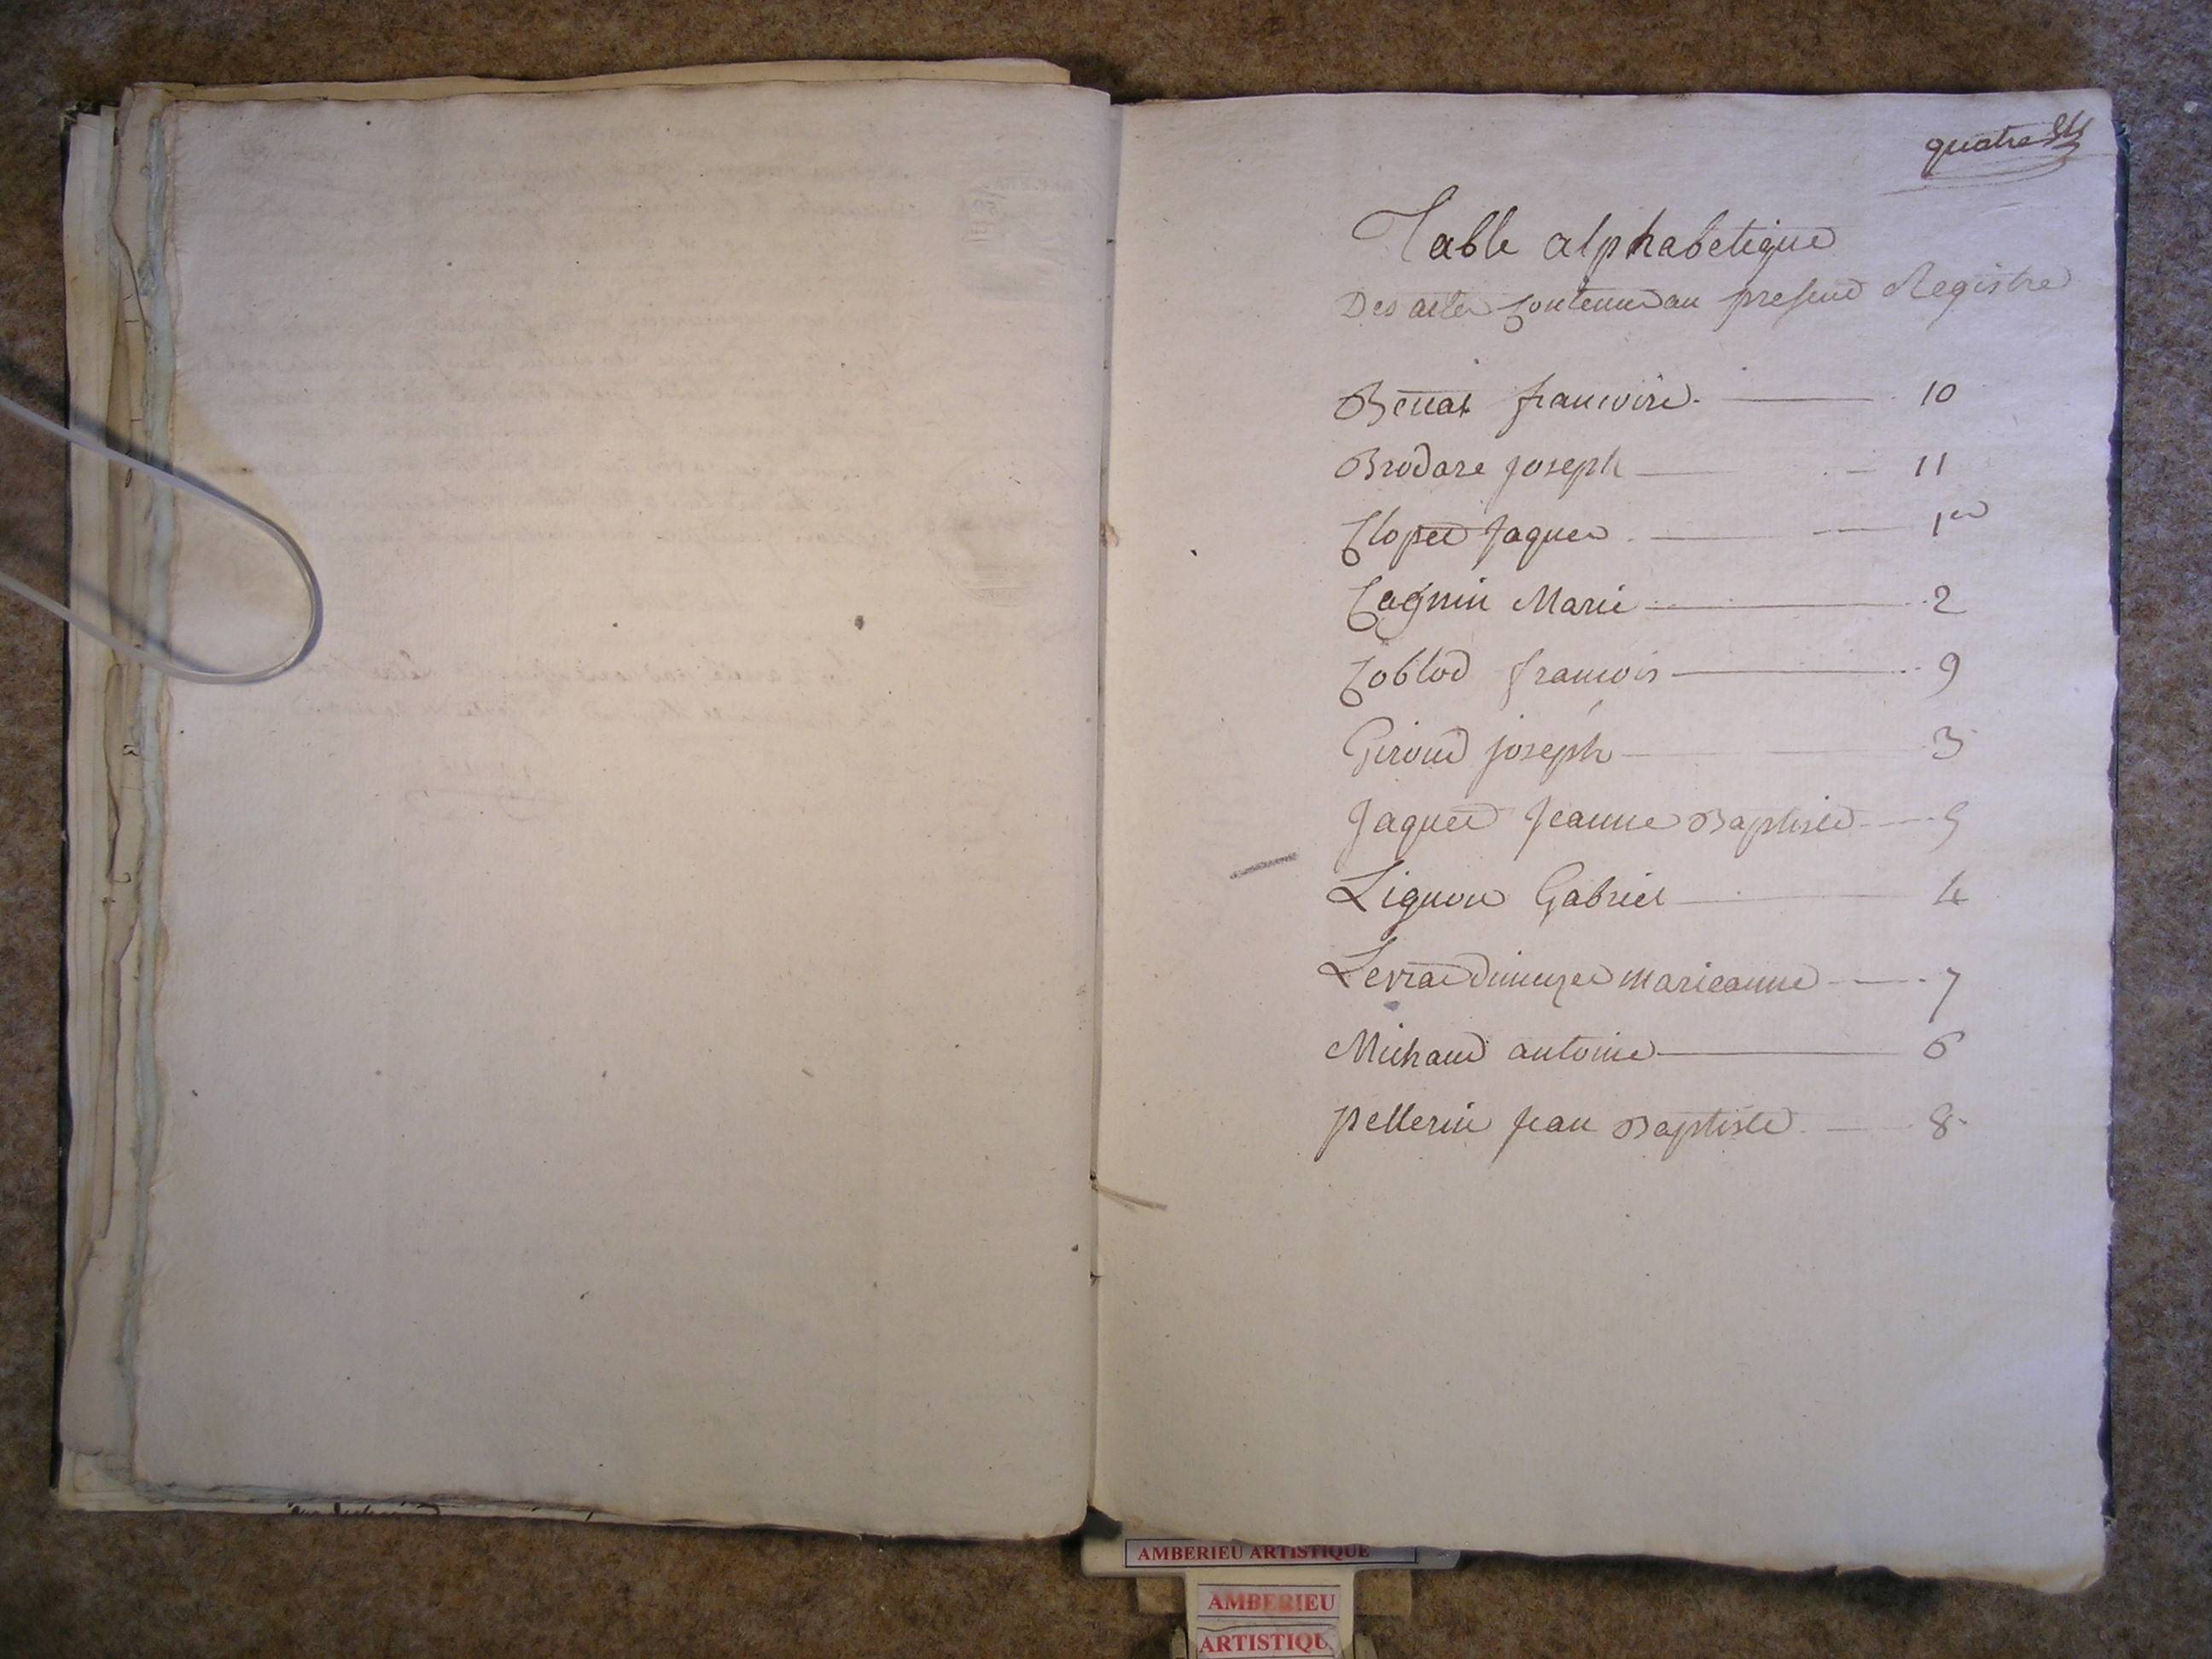 quatre
Table alphabetique
Des actes Contenu au present Registre
Benat francoise 10
Brodare joseph 11
Clopet Jaques 1er
Cagnin Marie 2
Coblod francois 9
Giroud joseph 3
Jaquet Jeanne Baptiste 5
Lignon Gabriel 4
Levrat marieanne 7
Michaud antoine 6
pellerin jean Baptiste 8
AMBERIEU ARTISTIQUE
AMBERIEU
ARTISTIQU